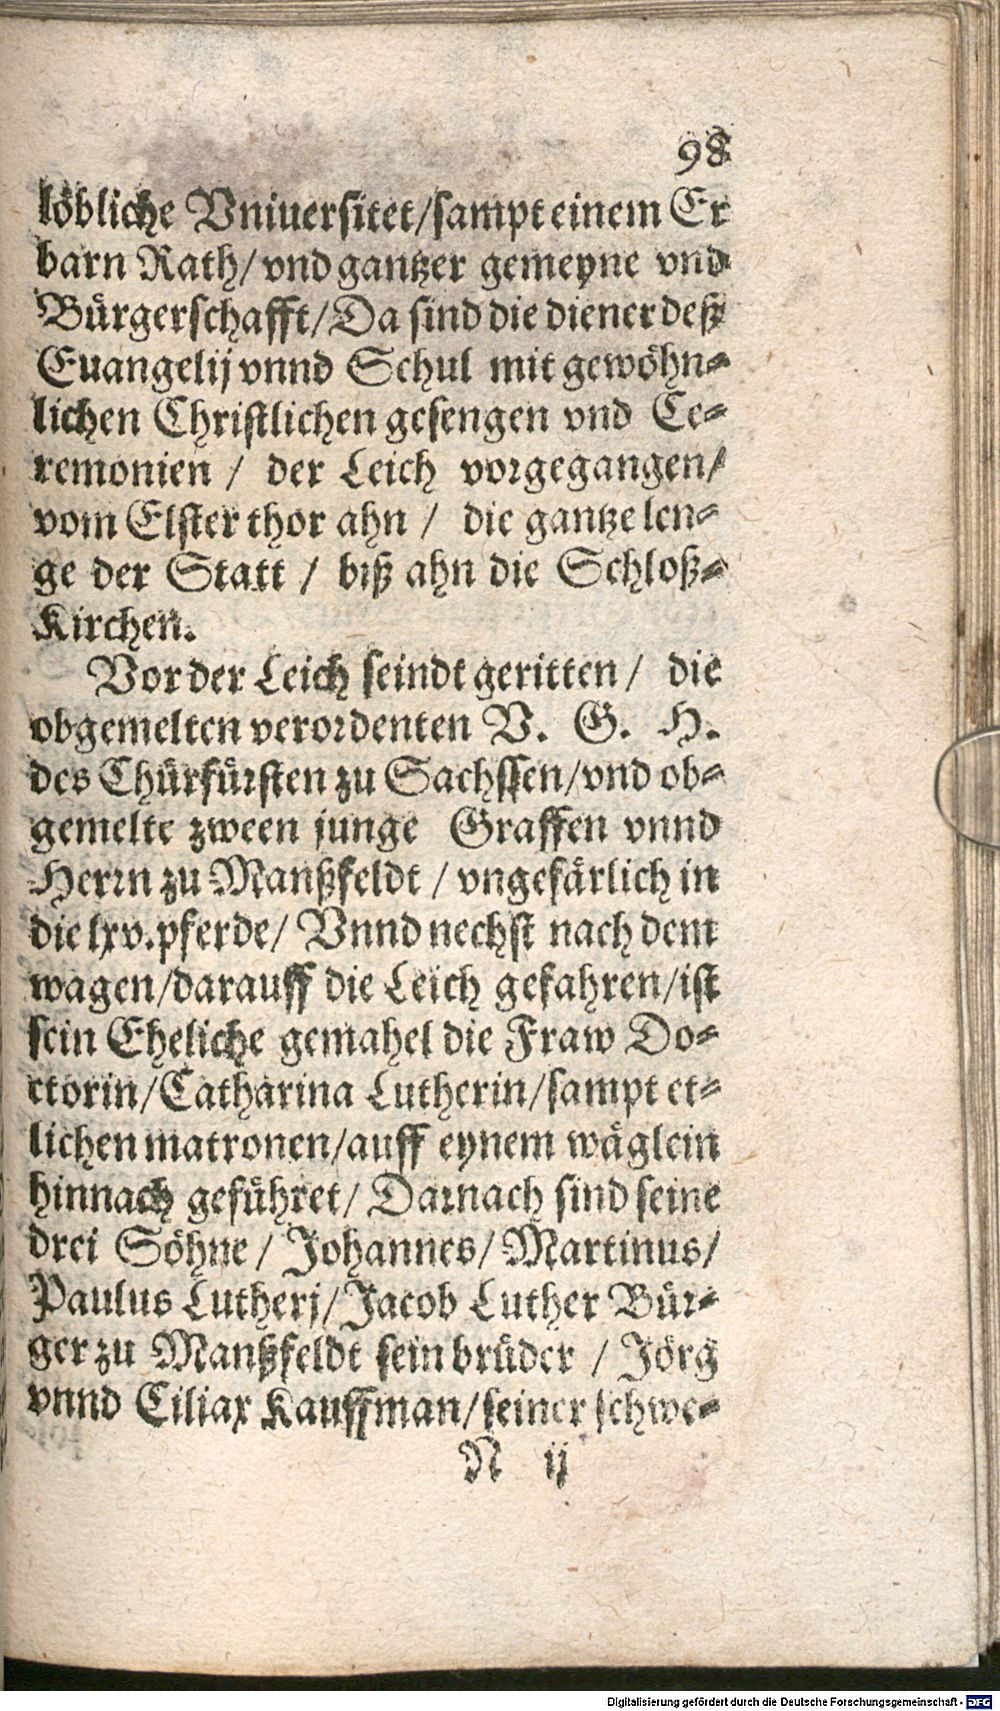 98
löbliche Vniuersitet/sampt einem Er
barn Rath/vnd gantzer gemeyne vnd
Bürgerschafft/Da sind die diener deß
Euangelij vnnd Schul mit gewöhn-
lichen Christlichen gesengen vnd Ce-
remonien / der Leich vorgegangen/
vom Elster thor ahn / die gantze len-
ge der Statt / biß ahn die Schloß-
Kirchen.
Vor der Leich seindt geritten / die
obgemelten verordenten V. G. H.
des Chürfürsten zu Sachssen/vnd ob-
gemelte zween junge Graffen vnnd
Herrn zu Manßfeldt / vngefärlich in
die lxv.pferde/ Vnnd nechst nach dem
wagen/darauff die Leich gefahren/ist
sein Eheliche gemahel die Fraw Do-
ctorin/Catharina Lutherin/sampt et-
lichen matronen/auff eynem wäglein
hinnach geführet/ Darnach sind seine
drei Söhne / Johannes/ Martinus/
Paulus Lutherj/Jacob Luther Bür-
ger zu Manßfeldt sein brüder / Jörg
vnnd Ciliax Kauffman/seiner schwe-
N ij
Digitalisierung gefördert durch die Deutsche Forschungsgemeinschaft - DFG